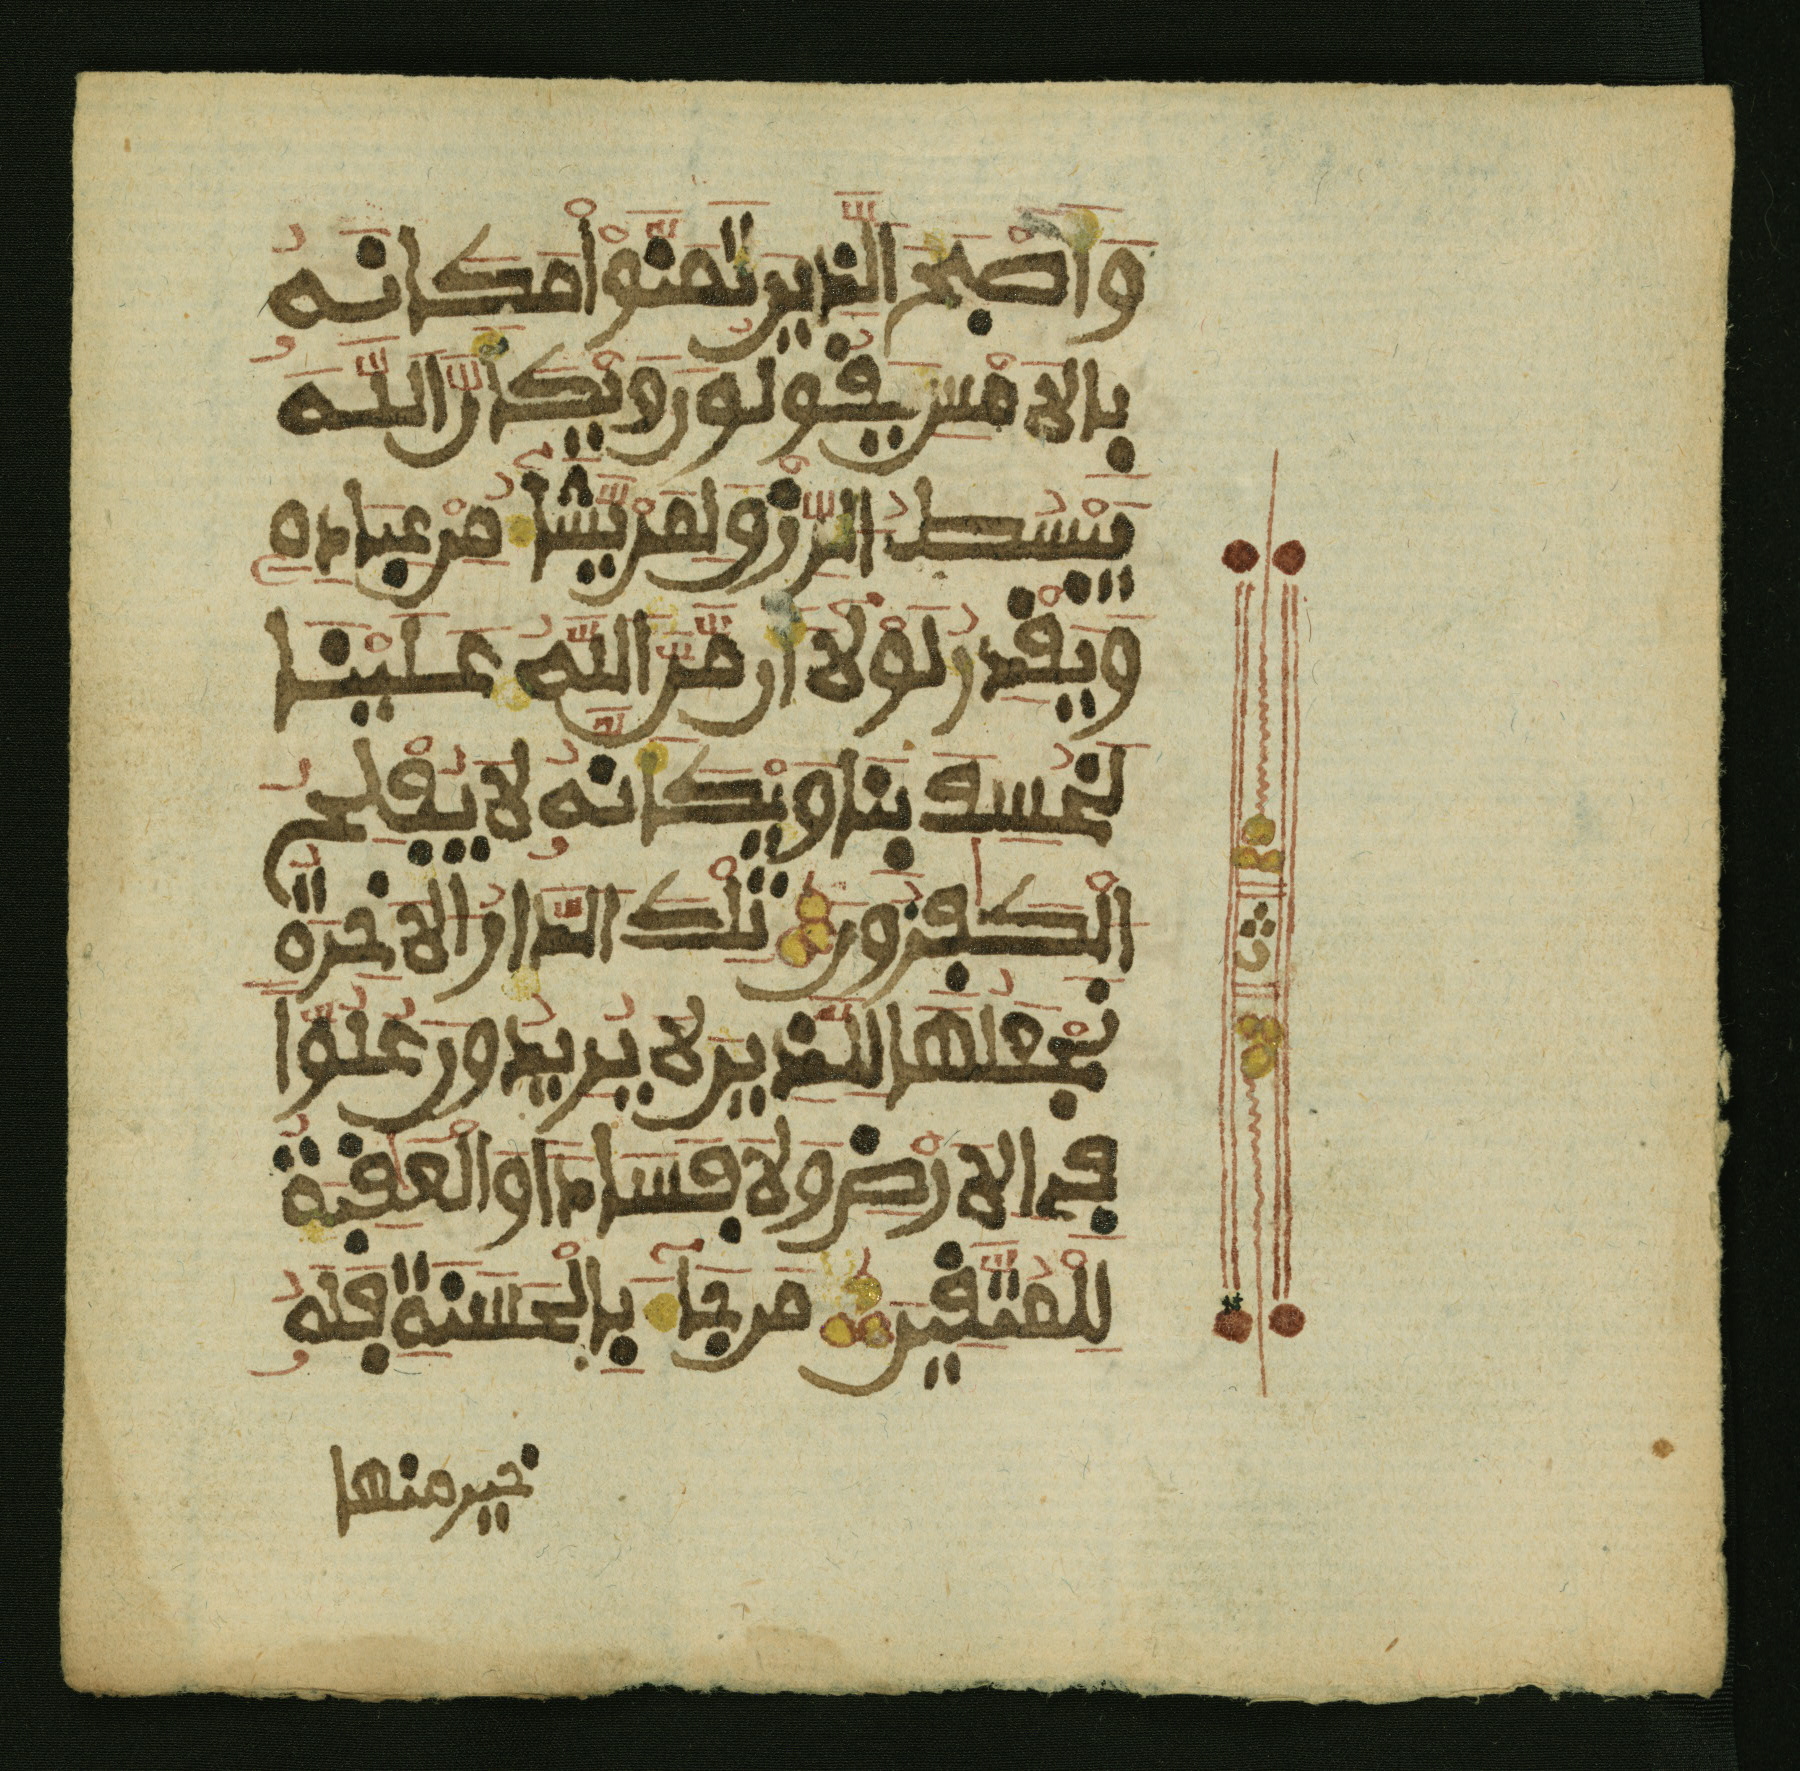 وَأَصْبَحَ الَّذِينَ تَمَنَّوْاْ مَكَانَهُ
بِالَامْسِ يَقُولُونَ وَيْكَأَنَّ اللَّهَ
يَبْسُطُ الرِّزْقَ لِمَنْ يَّشَآءُ مِنْ عِبَادِهِ
وَيَقْدِرُ لَوْلَا أَن مَّنَّ اللَّهُ عَلَيْنَا
لَخُسِفَ بِنَا وَيْكَأَنَّهُ لَا يُفْلِحُ
الْكَٰفِرُونَ تِلْكَ الدَّارُ الَاخِرَةُ
نَجْعَلُهَا لِلَّذِينَ لَا يُرِيدُونَ عُلُوّاً
فِي الَارْضِ وَلَا فَسَاداً وَالْعَٰقِبَةُ
لِلْمُتَّقِينَ مَن جَآءَ بِالْحَسَنَةِ فَلَهُ
خير منها
ث